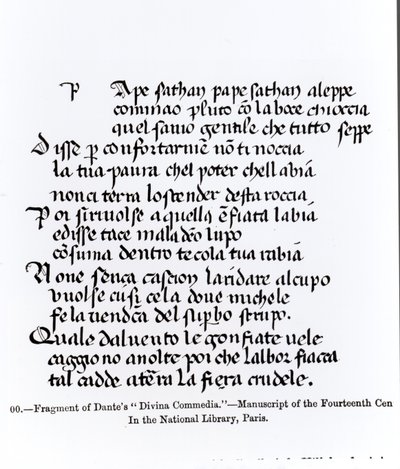 P Ape sathan pape sathan aleppe
cominao pluto cō la boce chioccia
quel savio gentile che tutto seppe
Disse p confortarme nō ti noccia
la tua paura chel poter chell abiā
non ci terra lo scender desta roccia
Poi si rivolse a quella ēfiata labiā
e disse tace maladeō lupo
cōsuma dentro te cola tua rabiā
None sença casgion laridare alcupo
vuolse cusi cela dove michele
fe la uendca del supbo strupo.
Quale dal uento le gonfiate uele
caggiono anolte poi che lalbor fiacca
tal cadde atērra la fiera crudele.
00.—Fragment of Dante's "Divina Commedia."—Manuscript of the Fourteenth Cen
In the National Library, Paris.